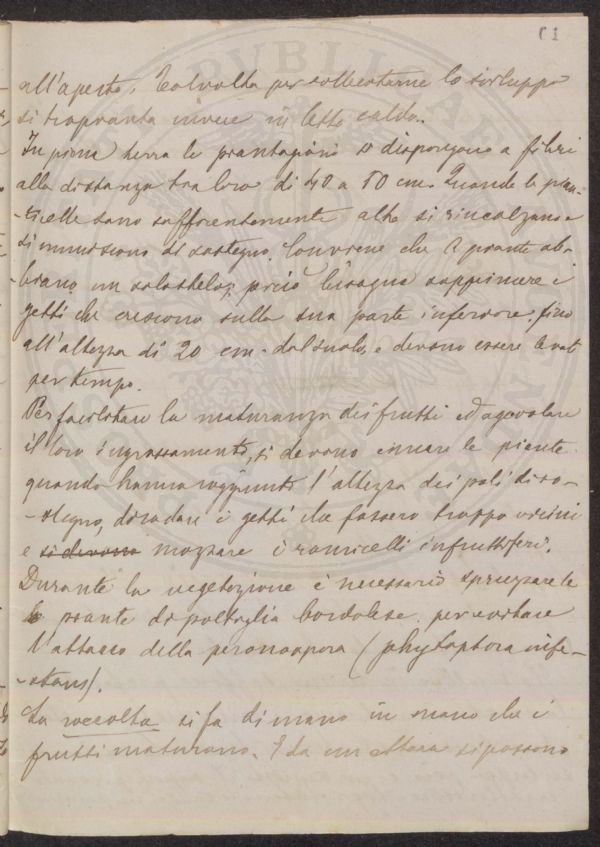 61
all'aperto. Talvolta per sollecitarne lo sviluppo
si trapianta invece in letto caldo.
In piena terra le piantagioni si dispongono a filari
alla distanza tra loro di 40 a 50 cm. Quando le pian-
-ticelle sono sufficientemente alte si rincalzano e
si muniscono di sostegno. Conviene che le piante ab-
biano un solo stelo, perciò bisogna sopprimere i
getti che crescono sulla sua parte inferiore, fino
all'altezza di 20 cm. dal suolo, e devono essere levati
per tempo.
Per facilitare la maturanza dei frutti ed agevolare
il loro ingrossamento, si devono cimare le piante
quando hanno raggiunto l'altezza dei pali di so-
-stegno, diradare i getti che fossero troppo vicini
e si devono mozzare i ramicelli infruttiferi.
Durante la vegetazione è necessario spruzzare le
piante di poltiglia bordolese per evitare
l'attacco della peronospora (phytoptora infe-
-stans).
La raccolta si fa di mano in mano che i
frutti maturano. E da un ettara si possono